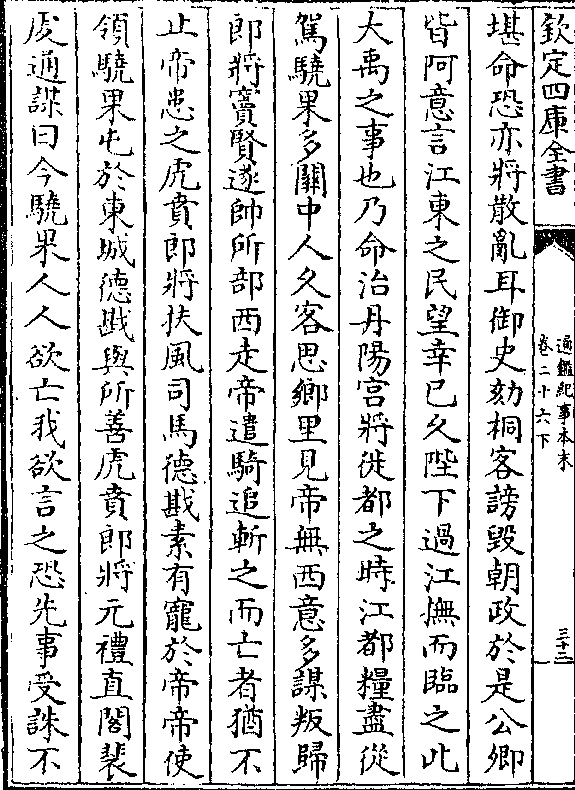 欽定四庫全書
通鑑紀事本末
卷二十六下
三十二
堪命恐亦將散亂耳御史劾桐客謗毀朝政於是公卿
皆阿意言江東之民望幸已久陛下過江撫而臨之此
大禹之事也乃命治丹陽宮將徙都之時江都糧盡從
駕驍果多關中人久客思鄉里見帝無西意多謀叛歸
郎將竇賢遂帥所部西走帝遣騎追斬之而亡者猶不
止帝患之虎賁郎將扶風司馬德戡素有寵於帝帝使
領驍果屯於東城德戡與所善虎賁郎將元禮直閣裴
䖍通謀曰今驍果人人欲亡我欲言之恐先事受誅不